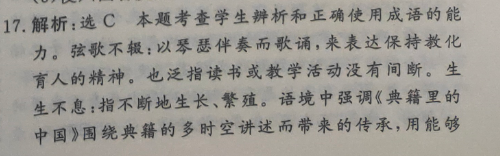 17.解析:选C 本题考查学生辨析和正确使用成语的能
力。弦歌不辍:以琴瑟伴奏而歌诵,来表达保持教化
育人的精神。也泛指读书或教学活动没有间断。生
生不息:指不断地生长、繁殖。语境中强调《典籍里的
中国》围绕典籍的多时空讲述而带来的传承,用能够